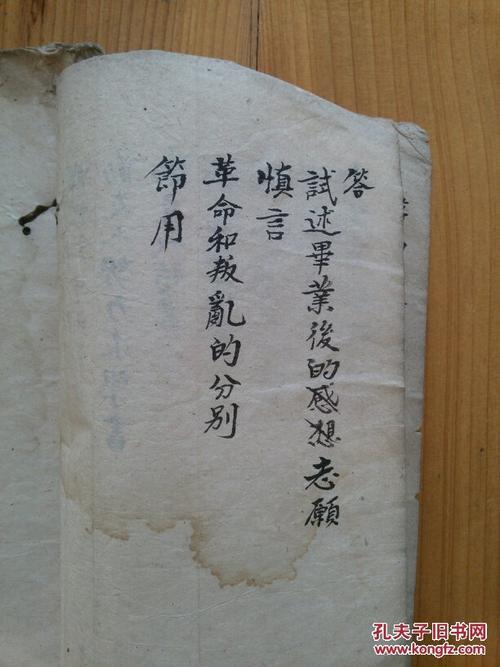 答
試述畢業後的感想志願
慎言
革命和叛亂的分別
節用
孔夫子旧书网
www.kongfz.com